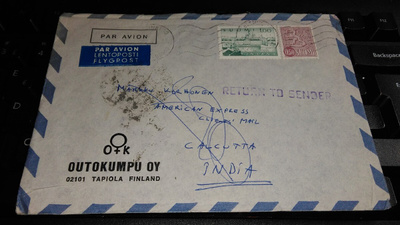 PAR AVION
PAR AVION
LENTOPOSTI
FLYGPOST
RETURN TO SENDER
AMERICAN EXPRESS
CLIENTS' MAIL
CALCUTTA
INDIA
OTK
OUTOKUMPU OY
02101 TAPIOLA FINLAND
Backspace